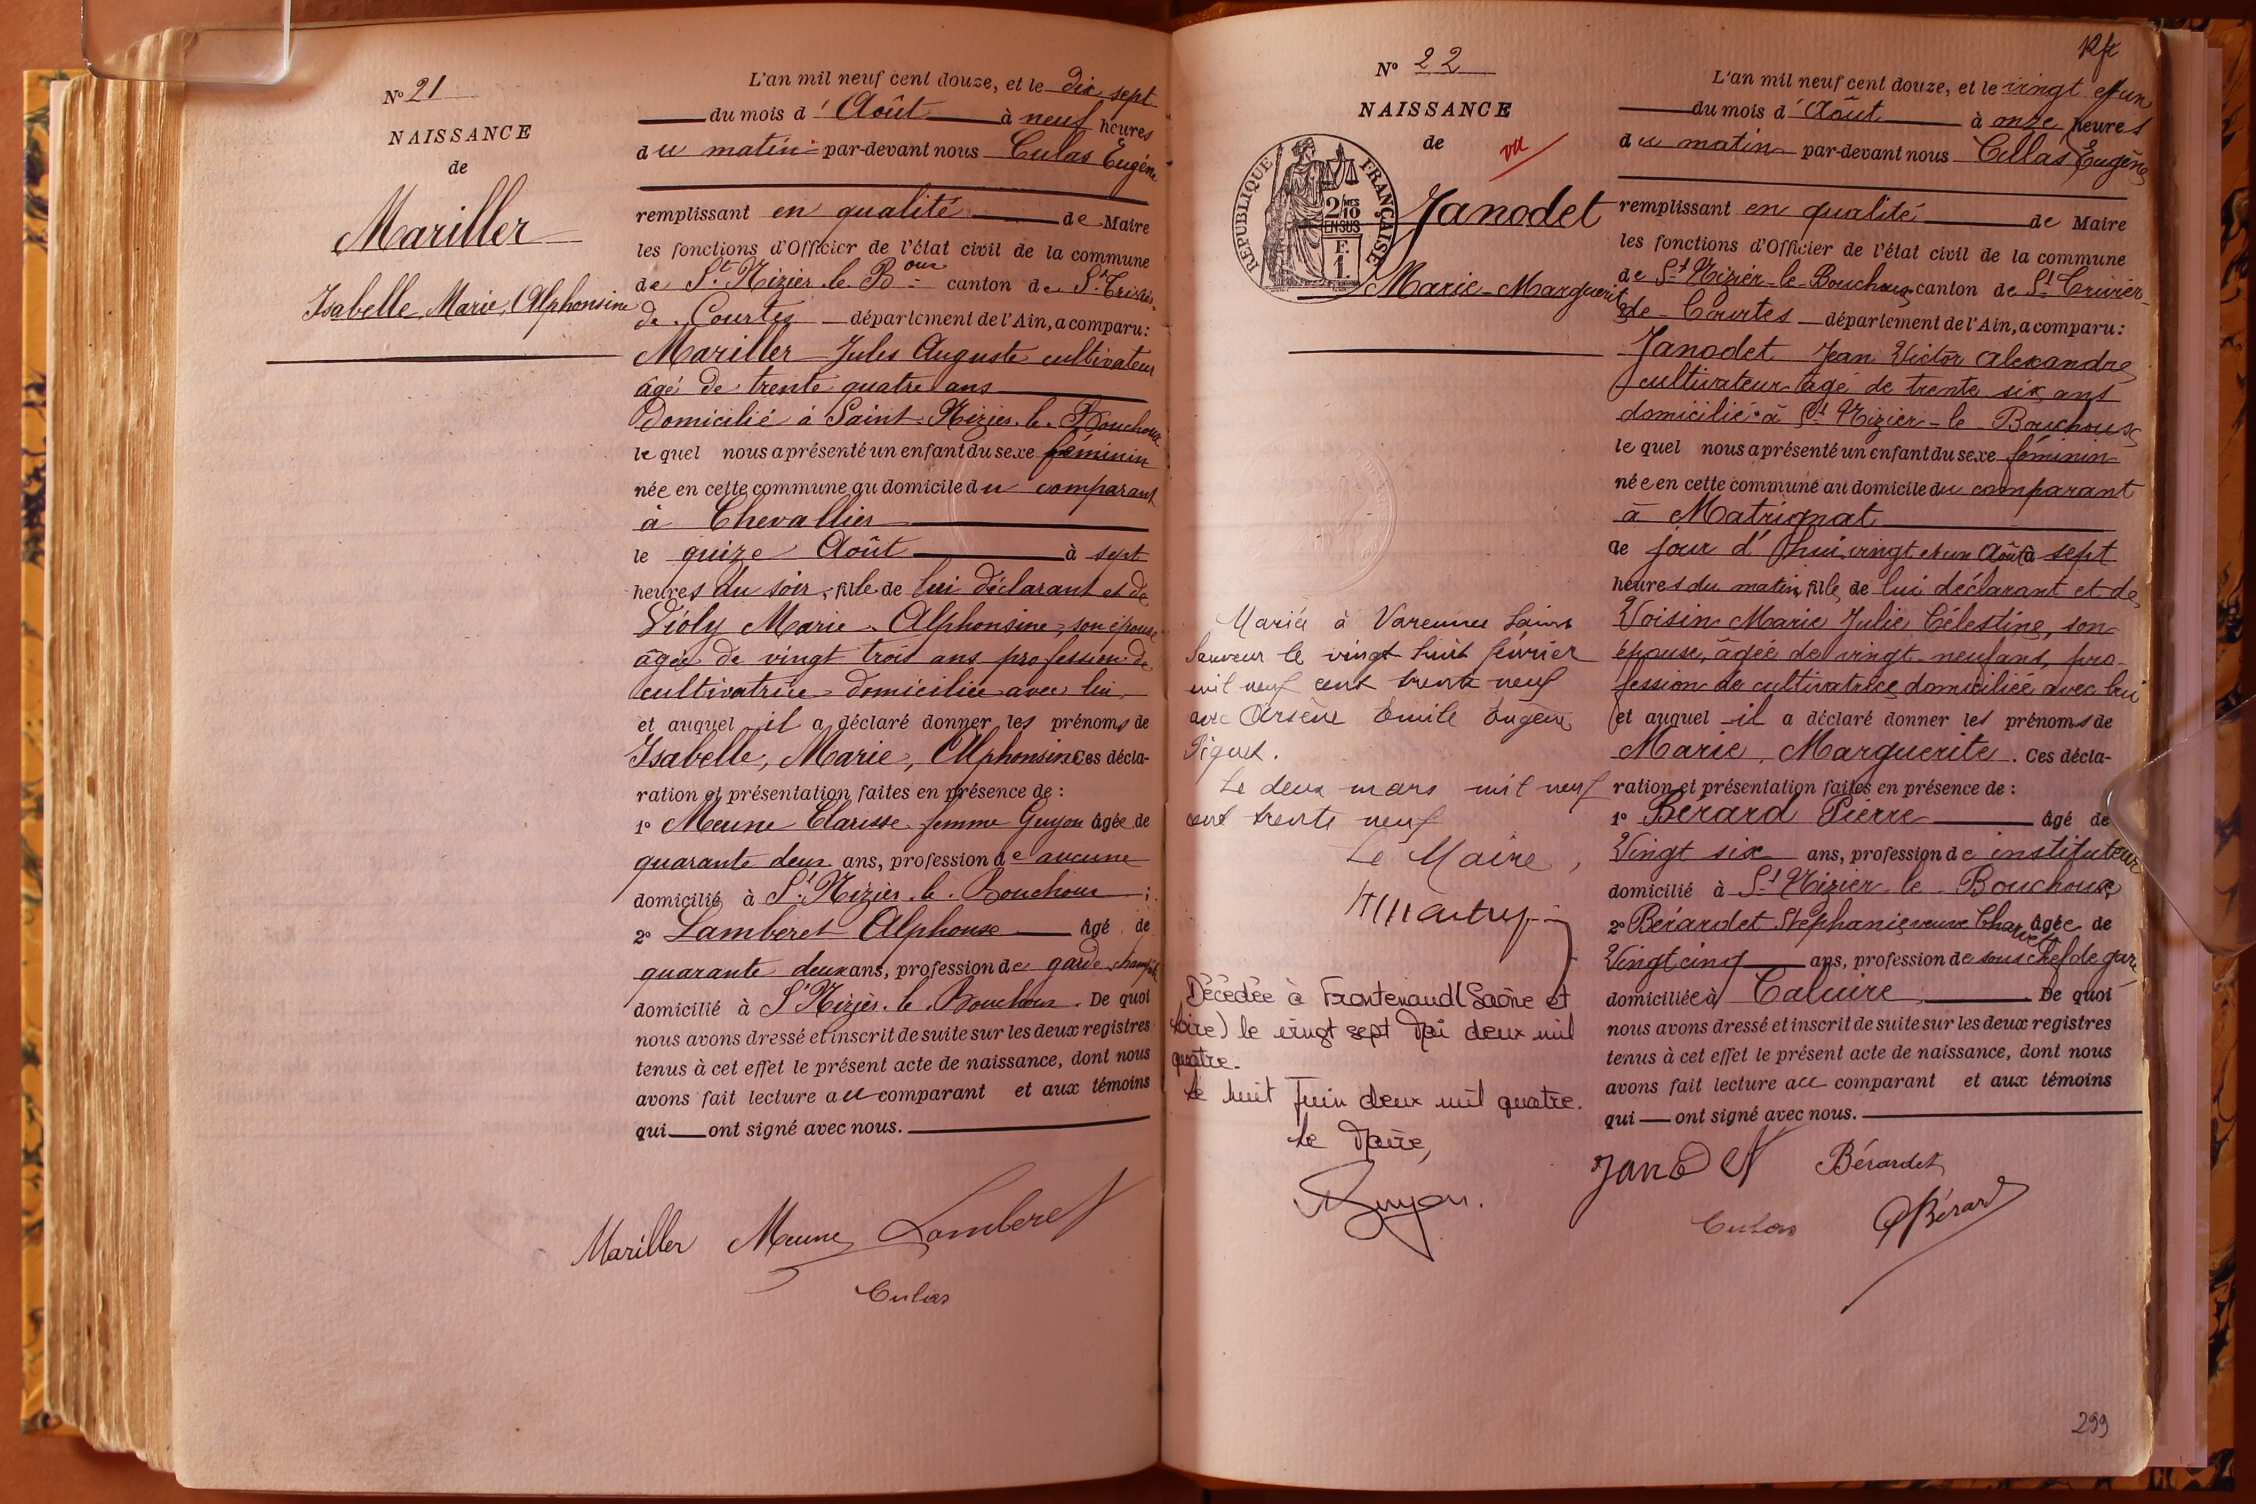 N° 21
NAISSANCE
de
Mariller
Isabelle, Marie, Alphonsine
L'an mil neuf cent douze, et le dix sept
du mois d'Août à neuf heures
du matin par-devant nous Culas Eugène
remplissant en qualité de Maire
les fonctions d'Officier de l'état civil de la commune
de St Nizier le Boux canton de St Trivier
de Courtes département de l'Ain, a comparu:
Mariller Jules Auguste cultivateur
âgé de trente quatre ans
Domicilié à Saint Nizier le Bouchoux
le quel nous a présenté un enfant du sexe féminin
née en cette commune au domicile du comparant
à Chevallier
le quize Août à sept
heures du soir, fille de lui déclarant et de
Violy Marie Alphonsine, son épouse
âgée de vingt trois ans profession de
cultivatrice domiciliée avec lui
et auquel il a déclaré donner les prénoms de
Isabelle, Marie, Alphonsine Ces décla-
ration et présentation faites en présence de :
1° Meune Clarisse femme Guyon âgée de
quarante deux ans, profession de aucune
domicilié à St Nizier le Bouchoux ;
2° Lamberet Alphonse âgé de
quarante deux ans, profession de garde champêtre
domicilié à St Nizier le Bouchoux. De quoi
nous avons dressé et inscrit de suite sur les deux registres
tenus à cet effet le présent acte de naissance, dont nous
avons fait lecture au comparant et aux témoins
qui ont signé avec nous.
Mariller Meune Lamberet
Culas
N° 22
NAISSANCE
de
vu
RÉPUBLIQUE FRANÇAISE
2/10MES
EN SUS
F.
1
Janodet
Marie-Marguerite
Mariée à Varennes Saint
Sauveur le vingt huit février
mil neuf cent trente neuf
avec Arsène Emile Eugène
Piguet.
Le deux mars mil neuf
cent trente neuf
Le Maire,
Décédée à Frontenaud (Saône et
Loire) le vingt sept Mai deux mil
quatre.
Le huit Juin deux mil quatre.
Le Maire,
Guyon.
L'an mil neuf cent douze, et le vingt et un
du mois d'Août à onze heures
du matin par-devant nous Culas Eugène
remplissant en qualité de Maire
les fonctions d'Officier de l'état civil de la commune
de St Nizier-le-Bouchoux canton de St Trivier-
de-Courtes département de l'Ain, a comparu:
Janodet Jean Victor Alexandre
cultivateur âgé de trente six ans
domicilié à St Nizier-le-Bouchoux
le quel nous a présenté un enfant du sexe féminin
née en cette commune au domicile du comparant
à Matrignat
le jour d'hui vingt et un Août à sept
heures du matin, fille de lui déclarant et de
Voisin Marie Julie Célestine, son
épouse, âgée de vingt-neuf ans, pro-
fession de cultivatrice domiciliée avec lui
et auquel il a déclaré donner les prénoms de
Marie, Marguerite. Ces décla-
ration et présentation faites en présence de :
1° Bérard Pierre âgé de
Vingt six ans, profession de instituteur
domicilié à St Nizier le Bouchoux
2° Bérardet Stéphanie veuve Charvet âgée de
Vingt cinq ans, profession de sous chef de gare
domiciliée à Caluire De quoi
nous avons dressé et inscrit de suite sur les deux registres
tenus à cet effet le présent acte de naissance, dont nous
avons fait lecture au comparant et aux témoins
qui ont signé avec nous.
Janodet Bérardet
Culas PBérard
299